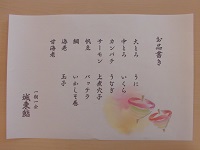 お品書き
大とろ　うに
中とろ　いくら
カンパチ　うなぎ
サーモン　上煮穴子
帆立　バッテラ
鯛　いかしそ巻
海老　玉子
甘海老
一期一会